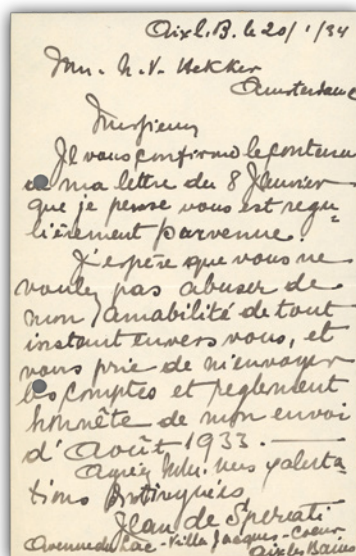 Aix l. B. le 20/1/34
Mr. N. V. Hekker
Amsterdam
Monsieur
Je vous confirme le contenu
de ma lettre du 8 Janvier
que je pense vous est regu=
lièrement parvenue.
J'espère que vous ne
voulez pas abuser de
mon amabilité de tout
instant envers vous, et
vous prie de m'envoyer
les comptes et reglement
honnête de mon envoi
d'Août 1933.
Agréez mes saluta=
tions distinguées
Jean de Sperati
Avenue du Lac - Villa Jacques-Coeur
Aix les Bains